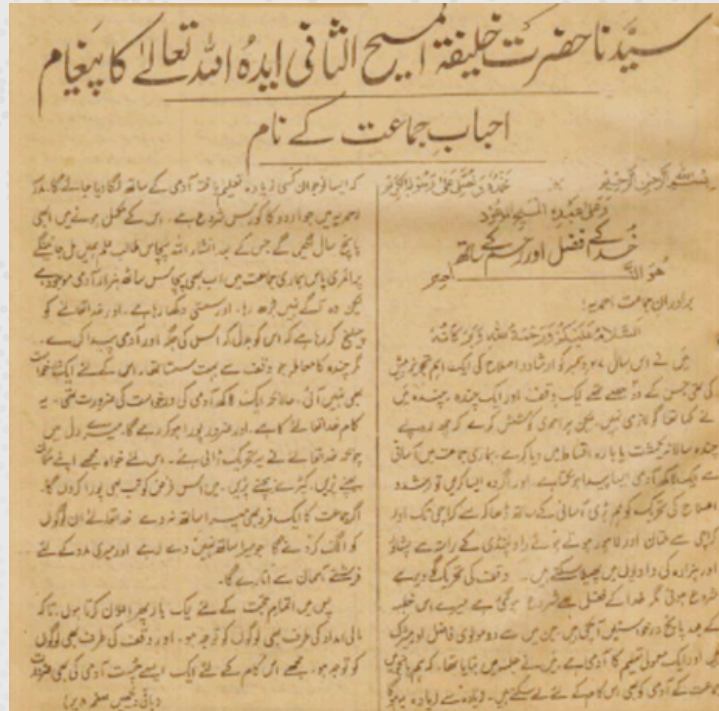 سیدنا حضرت خلیفۃ المسیح الثانی ایدہ اللہ تعالےٰ کا پیغام
احباب جماعت کے نام
بسم اللہ الرحمن الرحیم نحمدہ ونصلی علیٰ رسولہ الکریم
وعلیٰ عبدہ المسیح الموعود
خدا کے فضل اور رحم کے ساتھ
ھوالناصر
برادران جماعت احمدیہ!
السلام علیکم ورحمۃ اللہ وبرکاتہ
میں نے اس سال ۲۷ دسمبر کو ارشاد و اصلاح کی ایک اہم تجویز پیش
کی تھی جس کے دو حصے تھے ایک وقف اور ایک چندہ۔ چندہ میں
نے کہا تھا گو لازمی نہیں۔ لیکن ہر احمدی کوشش کرے کہ چھ روپے
چندہ سالانہ یکمشت یا بارہ اقساط میں دیا کرے۔ ہماری جماعت میں آسانی
سے ایک لاکھ آدمی ایسا پیدا ہو سکتا ہے۔ اور اگر وہ ایسا کریں تو رشد و
اصلاح کی تحریک کو ہم بڑی آسانی کے ساتھ ڈھاکہ سے کراچی تک اور
کراچی سے ملتان اور لاہور ہوتے ہوئے راولپنڈی کے راستہ سے پشاور
اور ہزارہ کی وادیوں میں پھیلا سکتے ہیں۔ وقف کی تحریک گو دیر سے
شروع ہوئی مگر خدا کے فضل سے شروع ہو گئی ہے میرے اس خطبہ
کے بعد پانچ درخواستیں آچکی ہیں۔ جن میں سے دو مولوی فاضل اور میٹرک
ہیں اور ایک معمولی تعلیم کا آدمی ہے۔ میں نے جلسہ میں بتایا تھا۔ کہ ہم
جماعت کے آدمی کو بھی اس کام کے لئے لے سکتے ہیں۔ زیادہ سے زیادہ یہ ہوگا
کہ ایسا نوجوان کسی زیادہ تعلیم یافتہ آدمی کے ساتھ لگا دیا جائے گا۔ مدرسہ
احمدیہ میں جو اردو کا کورس شروع ہے۔ اس کے مکمل ہونے میں ابھی
پانچ سال لگیں گے جس کے بعد انشاء اللہ پچاس طالب علم ہمیں مل جائینگے
پرائمری پاس ہماری جماعت میں اب بھی پچاس ساٹھ ہزار آدمی موجود ہے
لیکن وہ آگے نہیں بڑھ رہا۔ اور سستی دکھا رہا ہے۔ اور خدا تعالےٰ کو
چیلنج کر رہا ہے کہ اس کو بدل کر اس کی جگہ اور آدمی پیدا کرے۔
گو چندہ کا معاملہ جو وقف سے بہت سستا تھا۔ اس کے لئے ایک درخواست
بھی نہیں آئی۔ حالانکہ ایک لاکھ آدمی کی درخواست کی ضرورت تھی۔ یہ
کام خدا تعالےٰ کا ہے۔ اور ضرور پورا ہو کر رہے گا۔ میرے دل میں
چونکہ خدا تعالےٰ نے یہ تحریک ڈالی ہے۔ اس لئے خواہ مجھے اپنے مکان
بیچنے پڑیں۔ کپڑے بیچنے پڑیں۔ میں اس فرض کو تب بھی پورا کروں گا۔
اگر جماعت کا ایک فرد بھی میرا ساتھ نہ دے خدا تعالےٰ ان لوگوں
کو الگ کر دے گا جو میرا ساتھ نہیں دے رہے اور میری مدد کے لئے
فرشتے آسمان سے اتارے گا۔
پس میں اتمام حجت کے لئے ایک بار پھر اعلان کرتا ہوں۔ تاکہ
مالی امداد کی طرف بھی لوگوں کو توجہ ہو۔ اور وقف کی طرف بھی لوگوں
کو توجہ ہو۔ مجھے اس کام کے لئے ایک ایسے آدمی کی بھی ضرورت